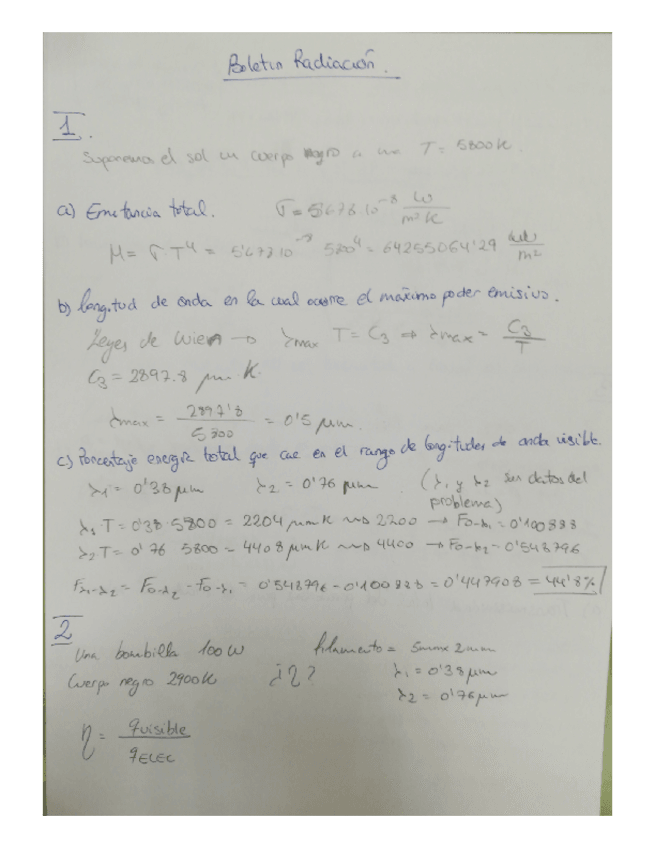 Boletín Radiación.
1.
Suponemos el sol un cuerpo negro a una T = 5800K.
a) Emitancia total. σ = 5'678·10⁻⁸ W/m²K
M = σ T⁴ = 5'678·10⁻⁸ 5800⁴ = 64255064'29 W/m²
b) longitud de onda en la cual ocurre el máximo poder emisivo.
Leyes de Wien → λmax T = C3 ⇒ λmax = C3/T
C3 = 2897.8 μm K.
λmax = 2897'8/5800 = 0'5 μm.
c) Porcentaje energía total que cae en el rango de longitudes de onda visible.
λ1 = 0'38 μm λ2 = 0'76 μm (λ1 y λ2 son datos del
problema)
λ1 T = 0'38·5800 = 2204 μm K ⇝ 2200 → F0-λ1 = 0'100888
λ2 T = 0'76 5800 = 4408 μm K ⇝ 4400 → F0-λ2 = 0'548796
Fλ1-λ2 = F0-λ2 - F0-λ1 = 0'548796 - 0'100888 = 0'447908 = 44'8%
2
Una bombilla 100W filamento = 5mm x 2mm
Cuerpo negro 2900K ¿η? λ1 = 0'38 μm
λ2 = 0'76 μm
η = qvisible/qELEC